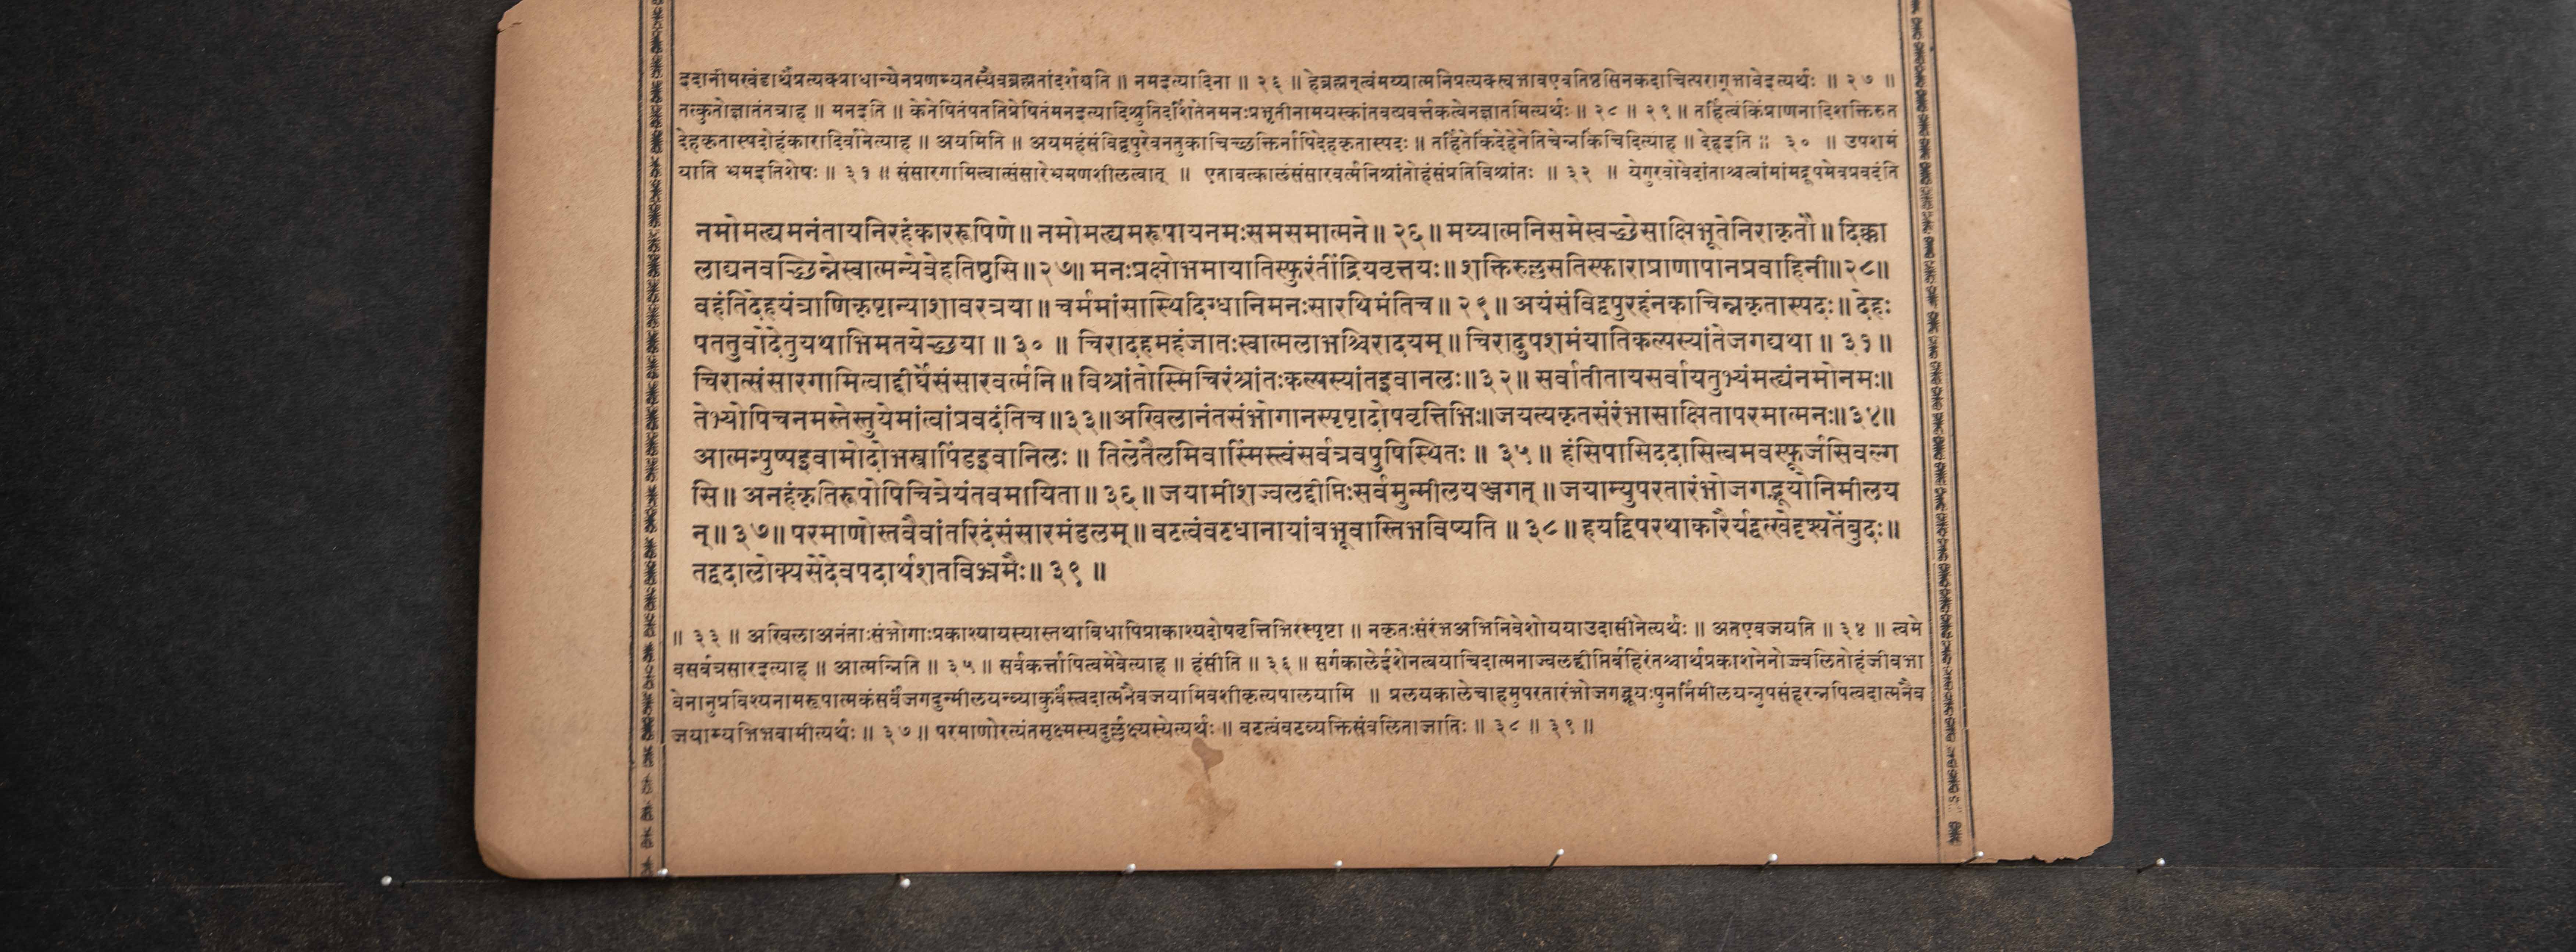 इदानीमखंडार्थंप्रत्यक्प्राधान्येनप्रणम्यतस्यैवब्रह्मतांदर्शयति ॥ नमइत्यादिना ॥ २६ ॥ हेब्रह्मन्त्वंमय्यात्मनिप्रत्यक्स्वभावएवतिष्ठसिनकदाचित्परागभावेइत्यर्थः ॥ २७ ॥
तत्कुतोज्ञातंतत्राह ॥ मनइति ॥ केनेषितंपततिप्रेषितंमनइत्यादिश्रुतिदर्शितेनमनःप्रभृतीनामयस्कांतवत्प्रवर्त्तकत्वेनज्ञातमित्यर्थः ॥ २८ ॥ २९ ॥ तर्हित्वंकिंप्राणनादिशक्तिरुत
देहकृतास्पदोहंकारादिर्वानेत्याह ॥ अयमिति ॥ अयमहंसंविद्वपुरेवनतुकाचिच्छक्तिर्नापिदेहकृतास्पदः ॥ तर्हितेकिंदेहेनेतिचेन्नकिंचिदित्याह ॥ देहइति ॥ ३० ॥ उपशमं
याति भ्रमइतिशेषः ॥ ३१ ॥ संसारगामित्वात्संसारेभ्रमणशीलत्वात् ॥ एतावत्कालंसंसारवर्त्मनिश्रांतोहंसंप्रतिविश्रांतः ॥ ३२ ॥ येगुरवोवेदांताश्चत्वांमांमद्रूपमेवप्रवदंति
नमोमह्यमनंतायनिरहंकाररूपिणे ॥ नमोमह्यमरूपायनमःसमसमात्मने ॥ २६ ॥ मय्यात्मनिसमेस्वच्छेसाक्षिभूतेनिराकृतौ ॥ दिक्का
लाद्यनवच्छिन्नेस्वात्मन्येवेहतिष्ठसि ॥ २७ ॥ मनःप्रक्षोभमायातिस्फुरंतींद्रियवृत्तयः ॥ शक्तिरुल्लसतिस्फाराप्राणापानप्रवाहिनी ॥ २८ ॥
वहंतिदेहयंत्राणिकृष्टान्याशावरत्रया ॥ चर्ममांसास्थिदिग्धानिमनःसारथिमंतिच ॥ २९ ॥ अयंसंविद्वपुरहंनकाचिन्नकृतास्पदः ॥ देहः
पततुवोदेतुयथाभिमतयेच्छया ॥ ३० ॥ चिरादहमहंजातःस्वात्मलाभश्चिरादयम् ॥ चिरादुपशमंयातिकल्पस्यांतेजगद्यथा ॥ ३१ ॥
चिरात्संसारगामित्वाद्दीर्घेसंसारवर्त्मनि ॥ विश्रांतोस्मिचिरंश्रांतःकल्पस्यांतइवानलः ॥ ३२ ॥ सर्वातीतायसर्वायतुभ्यंमह्यंनमोनमः ॥
तेभ्योपिचनमस्तेस्तुयेमांत्वांप्रवदंतिच ॥ ३३ ॥ अखिलानंतसंभोगानस्पृष्टादोषवृत्तिभिः ॥ जयत्यकृतसंरंभासाक्षितापरमात्मनः ॥ ३४ ॥
आत्मन्पुष्पइवामोदोभस्त्रापिंडइवानिलः ॥ तिलेतैलमिवास्मिंस्त्वंसर्वत्रवपुषिस्थितः ॥ ३५ ॥ हंसिपासिददासित्वमवस्फूर्जसिवल्ग
सि ॥ अनहंकृतिरूपोपिचित्रेयंतवमायिता ॥ ३६ ॥ जयामीशज्वलद्दीप्तिःसर्वमुन्मीलयञ्जगत् ॥ जयाम्युपरतारंभोजगद्भूयोनिमीलय
न् ॥ ३७ ॥ परमाणोस्तवैवांतरिदंसंसारमंडलम् ॥ वटत्वंवटधानायांबभूवास्तिभविष्यति ॥ ३८ ॥ हयद्विपरथाकारैर्यद्वत्खेदृश्यतेंबुदः ॥
तद्वदालोक्यसेदेवपदार्थशतविभ्रमैः ॥ ३९ ॥
॥ ३३ ॥ अखिलाअनंताःसंभोगाःप्रकाश्यायस्यास्तथाविधापिप्राकाश्यदोषवृत्तिभिरस्पृष्टा ॥ नकृतःसंरंभअभिनिवेशोययाउदासीनेत्यर्थः ॥ अतएवजयति ॥ ३४ ॥ त्वमे
वसर्वत्रसारइत्याह ॥ आत्मन्निति ॥ ३५ ॥ सर्वकर्त्तापित्वमेवेत्याह ॥ हंसीति ॥ ३६ ॥ सर्गकालेईशेनत्वयाचिदात्मनाज्वलद्दीप्तिर्बहिरंतश्चार्थप्रकाशनेनोज्ज्वलितोहंजीवभा
वेनानुप्रविश्यनामरूपात्मकंसर्वंजगदुन्मीलयन्व्याकुर्वंस्त्वदात्मनैवजयामिवशीकृत्यपालयामि ॥ प्रलयकालेचाहमुपरतारंभोजगद्भूयःपुनर्निमीलयन्नुपसंहरन्नपित्वदात्मनैव
जयाम्यभिभवामीत्यर्थः ॥ ३७ ॥ परमाणोरत्यंतसूक्ष्मस्यदुर्लक्ष्यस्येत्यर्थः ॥ वटत्वंवटव्यक्तिसंवलिताजातिः ॥ ३८ ॥ ३९ ॥